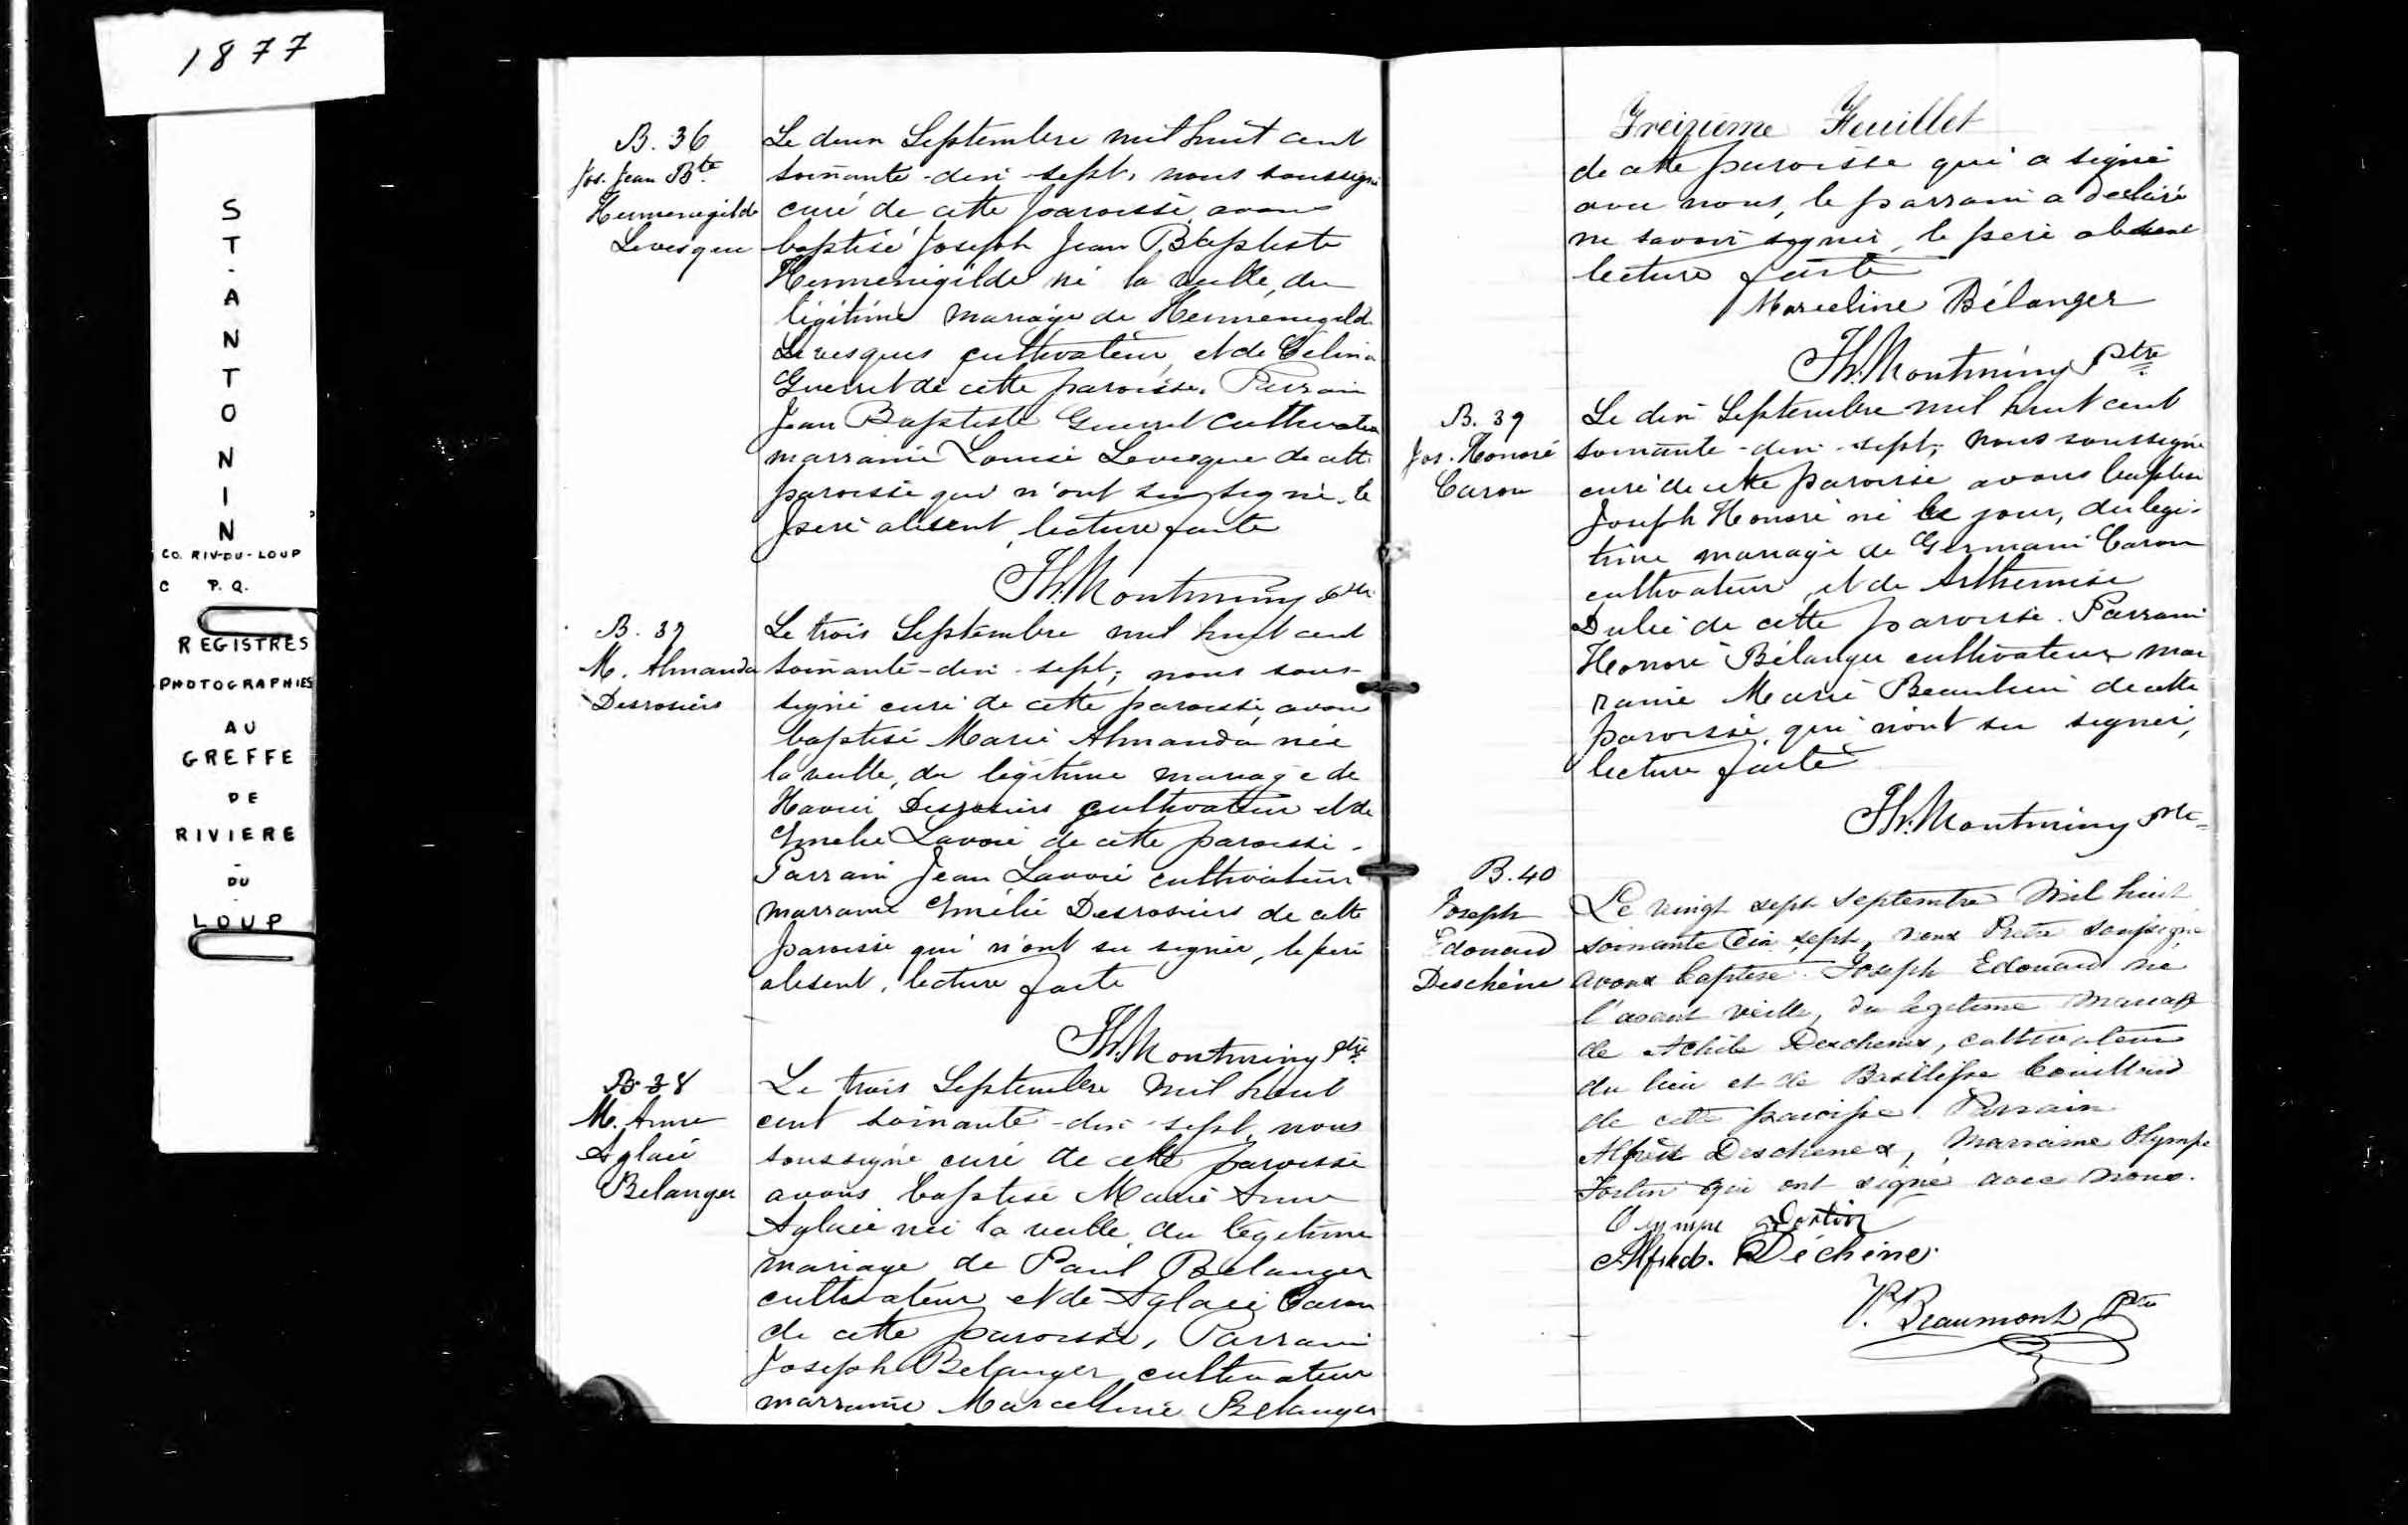 1877
ST-ANTONIN
CO. RIV-DU-LOUP
C P. Q.
REGISTRES
PHOTOGRAPHIES
AU
GREFFE
DE
RIVIERE
-
DU
-
LOUP
B. 36
Jos. Jean Bte
Hermenegilde
Levesque
Le deux Septembre mil huit cent
soixante-dix-sept, nous soussigné
curé de cette paroisse avons
baptisé Joseph Jean Baptiste
Hermenigilde né la veille, du
légitime mariage de Hermenegilde
Levesques cultivateur, et de Celina
Guerret de cette paroisse. Parrain
Jean Baptiste Guerret cultivateur
marraine Louise Levesque de cette
paroisse qui n'ont su signer, le
père absent, lecture faite
Th. Montminy ptre
B. 37
M. Almanda
Desrosiers
Le trois Septembre mil huit cent
soixante-dix-sept, nous sous-
signé curé de cette paroisse, avons
baptisé Marie Almanda née
la veille, du légitime mariage de
Xavier Desrosiers cultivateur et de
Emelie Lavoie de cette paroisse.
Parrain Jean Lavoie cultivateur
marraine Emélie Desrosiers de cette
paroisse qui n'ont su signer, le père
absent, lecture faite
Th. Montminy ptre
B. 38
M. Anne
Aglaé
Belanger
Le trois Septembre mil huit
cent soixante-dix-sept, nous
soussigné curé de cette paroisse
avons baptisé Marie Anne
Aglaée née la veille, du légitime
mariage de Paul Belanger
cultivateur et de Aglaée Caron
de cette paroisse, Parrain
Joseph Belanger cultivateur
marraine Marcelline Belanger
Treizième Feuillet
de cette paroisse qui a signé
avec nous, le parrain a déclaré
ne savoir signer, le père absent
lecture faite
Marceline Bélanger
Th. Montminy Ptre
B. 39
Jos. Honoré
Caron
Le dix Septembre mil huit cent
soixante-dix-sept, nous soussigné
curé de cette paroisse avons baptisé
Joseph Honoré né le jour, du légi-
time mariage de Germain Caron
cultivateur, et de Arthemise
Dubé de cette paroisse. Parrain
Honoré Bélanger cultivateur mar
raine Marie Beaulieu de cette
paroisse, qui n'ont su signer,
lecture faite
Th. Montminy ptre
B. 40
Joseph
Edouard
Deschène
Le vingt sept septembre mil huit
soixante dix sept, nous Prêtre soussigné
avons baptisé Joseph Edouard né
l'avant veille, du légitime mariage
de Achile Deschenes, cultivateur
du lieu et de Basilisse Couillard
de cette paroisse. Parrain
Alfred Deschenes, Marraine Olympe
Fortin qui ont signé avec nous.
Olympe Fortin
Alfred. Déchène
Beaumont Ptre